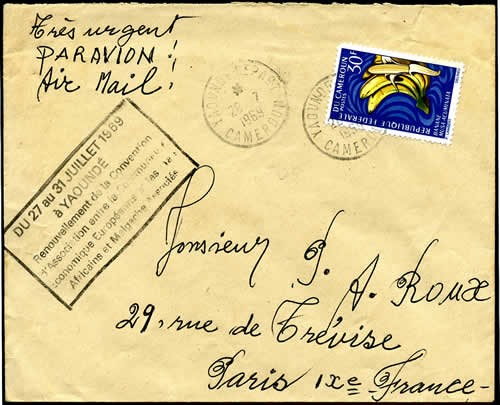 Très urgent
PAR AVION!
Air Mail.
YAOUNDE DEPART
28 - 7
1969
CAMEROUN
YAOUNDE
CAMEROUN
REPUBLIQUE FEDERALE
DU CAMEROUN
POSTES
30F
BANANE
DU 27 au 31 JUILLET 1969
à YAOUNDÉ
Renouvellement de la Convention
d'Association entre la Communauté
Economique Européenne et les
Africains et Malgache Associés
Monsieur P. A. ROUX
29, rue de Trévise
Paris IXe France